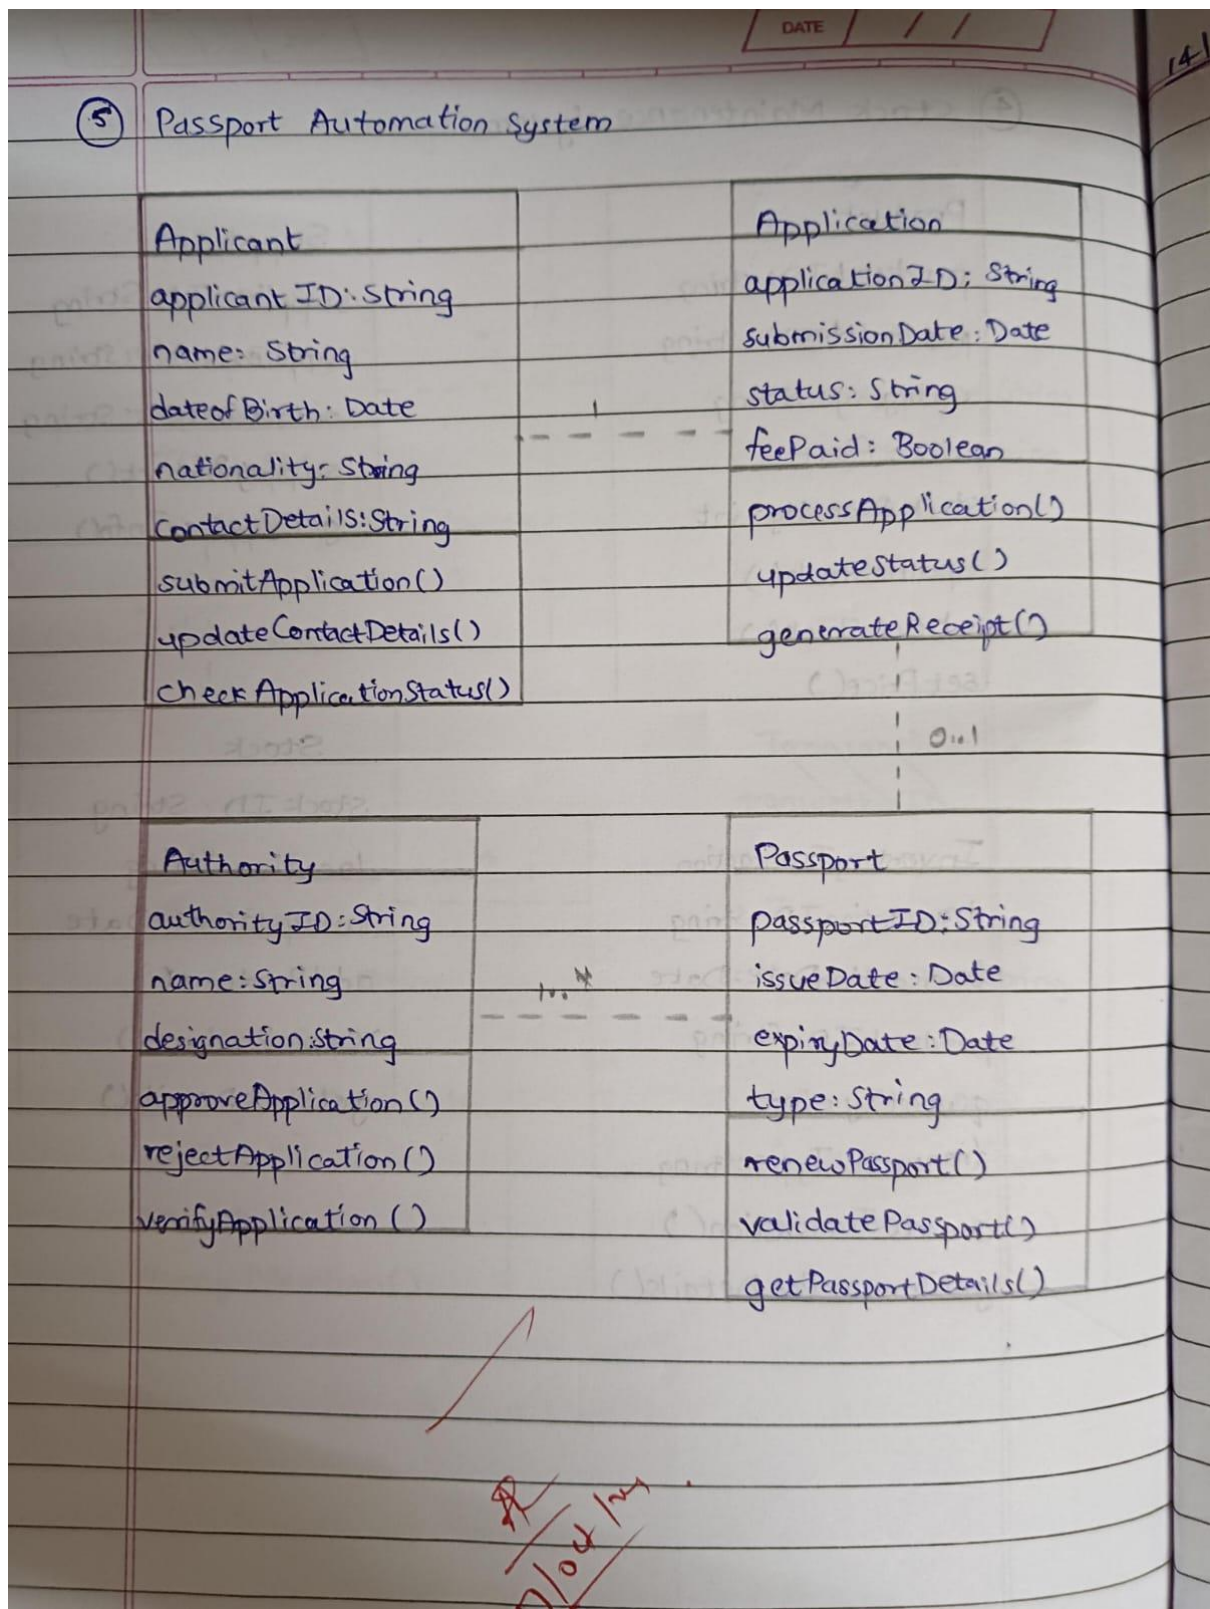 DATE / /
141
5 Passport Automation System
Applicant
applicant ID: String
name: String
dateofBirth: Date
nationality: String
contactDetails: String
submitApplication()
updateContactDetails()
checkApplicationStatus()
1
Application
applicationID: String
submissionDate: Date
status: String
feePaid: Boolean
processApplication()
updateStatus()
generateReceipt()
0..1
Authority
authorityID: String
name: String
designation: String
approveApplication()
rejectApplication()
verifyApplication()
1..*
Passport
passportID: String
issueDate: Date
expiryDate: Date
type: String
renewPassport()
validatePassport()
getPassportDetails()